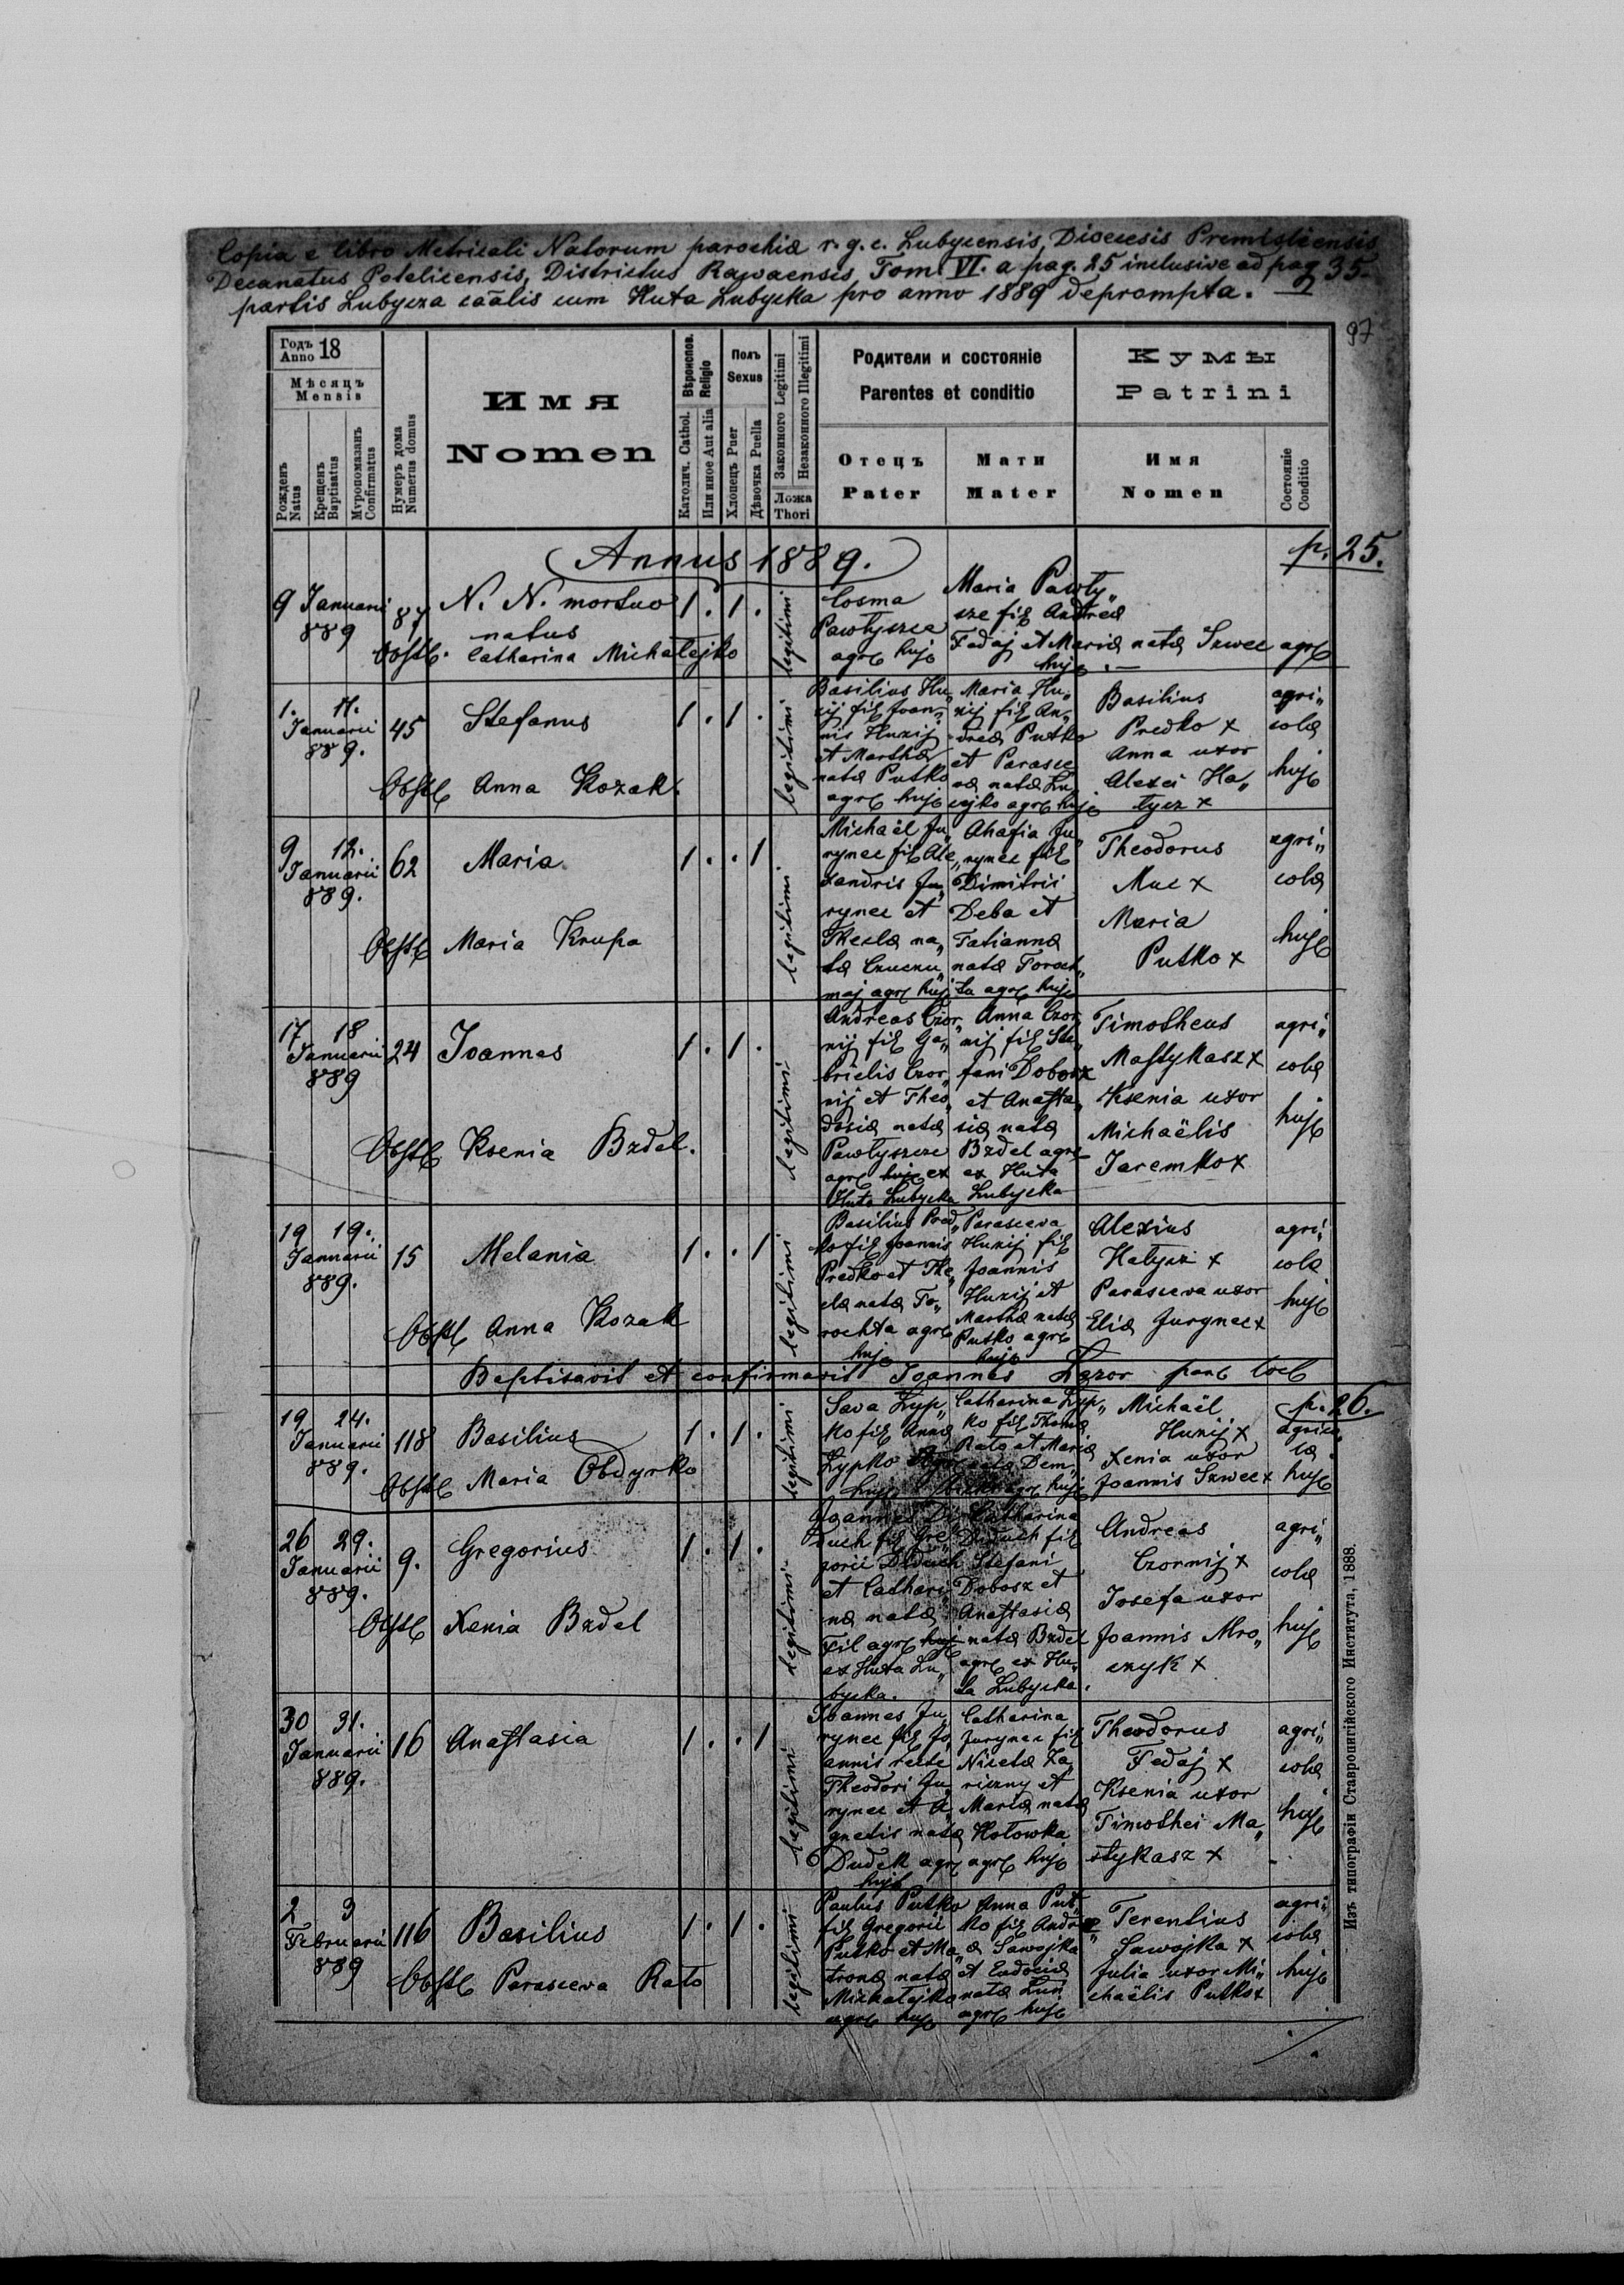 Copia e libro Metricali Natorum parochiæ r. g. c. Lubycensis, Diœcesis Premisliensis
Decanatus Potelicensis, Districtus Rawaensis, Tom. VI. a pag. 25 inclusive ad pag 35.
partis Lubycza cäalis cum Huta Lubycka pro anno 1889 deprompta.
97
Годъ
Anno 18
Мѣсяцъ
Mensis
Рожденъ
Natus
Крещенъ
Baptisatus
Мѵропомазанъ
Confirmatus
Нумеръ дома
Numerus domus
Имя
Nomen
Вѣроиспов.
Religio
Католич. Cathol.
Или иное Aut alia
Полъ
Sexus
Хлопецъ Puer
Дѣвочка Puella
Законного Legitimi
Незаконного Illegitimi
Ложа
Thori
Родители и состояніе
Parentes et conditio
Отецъ
Pater
Мати
Mater
Кумы
Patrini
Имя
Nomen
Состояніе
Conditio
Annus 1889.
p. 25.
9 Januarii
889
87
N. N. mortuo
natus
Obst. Catharina Michałejko
1 . 1 .
legitimi
Cosma
Pawłyszcze
agrc hujc
Maria Pawły„
sze fil Andreæ
Fedaj et Mariæ natæ Szwec agrc
hujc
1. 11.
Januarii
889.
45
Stefanus
Obst Anna Kozak.
1 . 1 .
legitimi
Basilius Hu„
zij fil Joan„
nis Huzij
et Marthæ
natæ Putko
agrc hujc
Maria Hu„
zij fil An„
dreæ Putko
et Parasce
væ natæ Lu„
cejko agrc hujc
Basilius
Predko x
Anna uxor
Alexei Ha„
łycz x
agri„
colæ
hujc
9 12.
Januarii
889.
62
Maria
Obst Maria Krupa
1 . . 1
legitimi
Michaël Ju„
rynec fil Ale„
xandris Ju„
rynec et
Theclæ na„
tæ Czuczu„
maj agrc hujc
Ahafia Ju
rynec fil
Dimitrii
Deba et
Tatiannæ
natæ Toroch„
ta agrc hujc
Theodorus
Muc x
Maria
Putko x
agri„
colæ
hujc
17 18
Januarii
889
24
Joannes
Obst Ksenia Bzdel.
1 . 1 .
legitimi
Andreas Czor„
nij fil Ga„
brielis Czor„
nij et Theo„
dosiæ natæ
Pawłyszcze
agrc hujc ex
Huta Lubycka
Anna Czor„
nij fil Ste„
fani Dobosz
et Anasta„
siæ natæ
Bzdel agrc
ex Huta
Lubycka
Timotheus
Mastykasz x
Ksenia uxor
Michaëlis
Jaremko x
agri„
colæ
hujc
19 19.
Januarii
889.
15
Melania
Obst Anna Kozak
1 . . 1
legitimi
Basilius Pred„
ko fil Joannis
Predko et The„
clæ natæ To„
rochta agrc
hujc
Parasceva
Huzij fil
Joannis
Huzij et
Marthæ natæ
Putko agrc
hujc
Alexius
Hałycz x
Parasceva uxor
Eliæ Jurynec x
agri„
colæ
hujc
Baptisavit et confirmavit Joannes Lazor par locl
p. 26.
19 24.
Januarii
889.
118
Basilius
Obst Maria Obdyrko
1 . 1 .
legitimi
Sava Lyp„
ko fil Annæ
Lypko agrc
hujc
Catharina Lyp„
ko fil Thomæ
Rato et Mariæ
natæ Dem„
agrc hujc
Michaël
Huzij x
Xenia uxor
Joannis Szwec x
agrico„
læ
hujc
26 29.
Januarii
889.
9.
Gregorius
Obst Xenia Bzdel
1 . 1 .
legitimi
Joannes Di„
duch fil Gre„
gorii Diduch
et Cathari„
næ natæ
Fil agrc hujc
ex Huta Lu„
bycka.
Catharina
Diduch fil
Stefani
Dobosz et
Anastasiæ
natæ Bzdel
agrc ex Hu„
ta Lubycka.
Andreas
Czornij x
Josefa uxor
Joannis Mro„
czyk x
agri„
colæ
hujc
30 31.
Januarii
889.
16
Anastasia
1 . . 1
legitimi
Joannes Ju„
rynec fil Jo„
annis recte
Theodori Ju„
rynec et A„
gnetis natæ
Dudek agrc
hujc
Catharina
Jurynec fil
Nicetæ Za„
riczny et
Mariæ natæ
Hołowka
agrc hujc
Theodorus
Fedaj x
Ksenia uxor
Timothei Ma„
stykasz x
agri„
colæ
hujc
2 3
Februarii
889
116
Basilius
Obst Parasceva Rato
1 . 1 .
legitimi
Paulus Putko
fil Gregorii
Putko et Ma„
tronæ natæ
Michałejko
agrc hujc
Anna Put„
ko fil Andre„
æ Sawojka
et Eudociæ
natæ Lun
agrc hujc
Terentius
Sawojka x
Julia uxor Mi„
chaëlis Putko x
agri„
colæ
hujc
Изъ типографіи Ставропигійского Института, 1888.